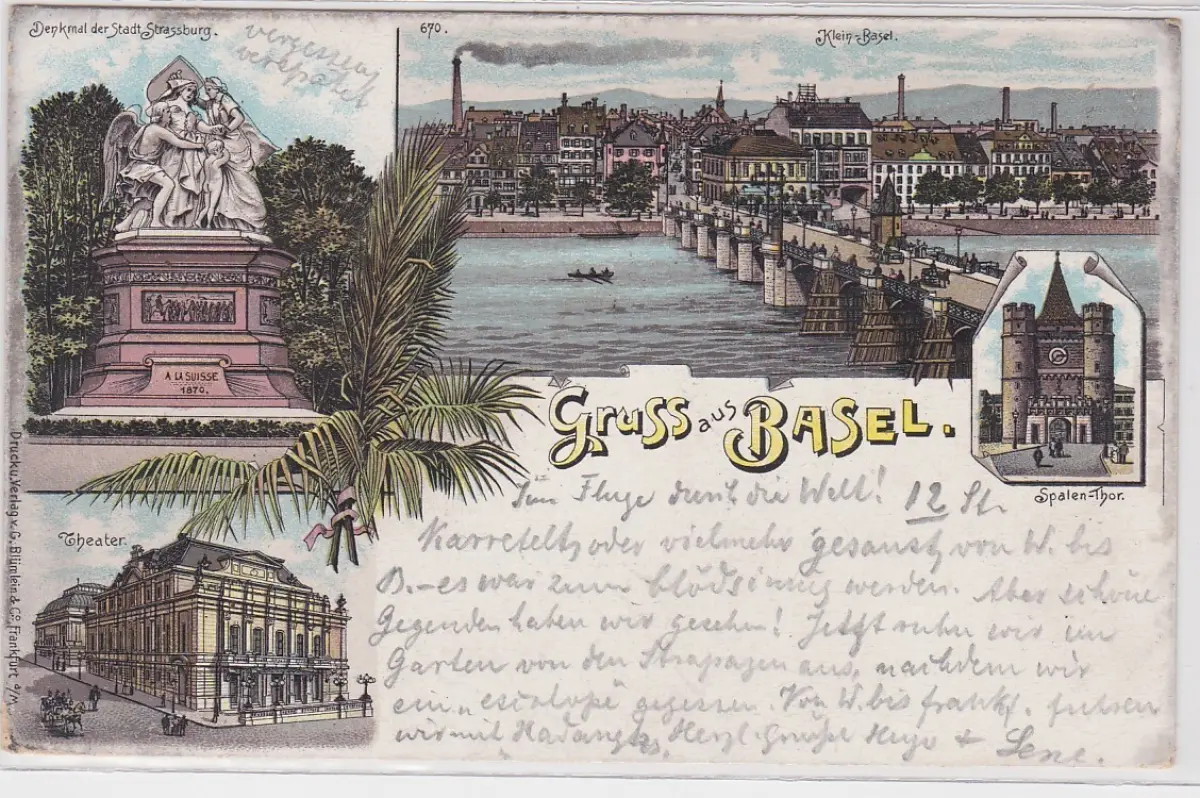 Denkmal der Stadt Strassburg.
vergessen
verspätet
670.
Klein-Basel.
A LA SUISSE
1870.
Gruss aus BASEL.
Spalen-Thor.
Theater.
Druck u. Verlag v. G. Blümlein & Co. Frankfurt a/M.
Im Fluge durch die Welt! 12 St.
Karretelt, oder vielmehr gesaust, von W. bis
B. - es war zum blödsinnig werden. Aber schöne
Gegenden haben wir gesehen! Jetzt ruhn wir im
Garten von den Strapazen aus, nachdem wir
ein gegessen. Von W. bis Frankf. fuhren
wir mit Herzl. Grüße Hugo + Lene.